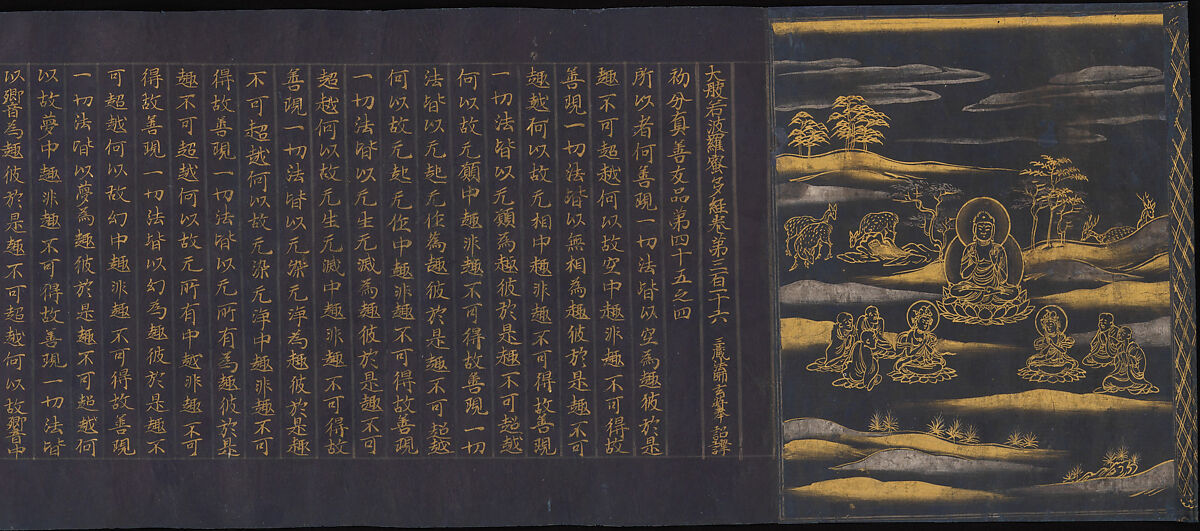 大般若波羅蜜多經卷第三百一十六 三藏法師玄奘奉 詔譯
初分真善友品第四十五之四
所以者何善現一切法皆以空為趣彼於是
趣不可超越何以故空中趣非趣不可得故
善現一切法皆以無相為趣彼於是趣不可
超越何以故无相中趣非趣不可得故善現
一切法皆以无願為趣彼於是趣不可超越
何以故无願中趣非趣不可得故善現一切
法皆以无起无作為趣彼於是趣不可超越
何以故无起无作中趣非趣不可得故善現
一切法皆以无生无滅為趣彼於是趣不可
超越何以故无生无滅中趣非趣不可得故
善現一切法皆以无染无淨為趣彼於是趣
不可超越何以故无染无淨中趣非趣不可
得故善現一切法皆以无所有為趣彼於是
趣不可超越何以故无所有中趣非趣不可
得故善現一切法皆以幻為趣彼於是趣不
可超越何以故幻中趣非趣不可得故善現
一切法皆以夢為趣彼於是趣不可超越何
以故夢中趣非趣不可得故善現一切法皆
以響為趣彼於是趣不可超越何以故響中